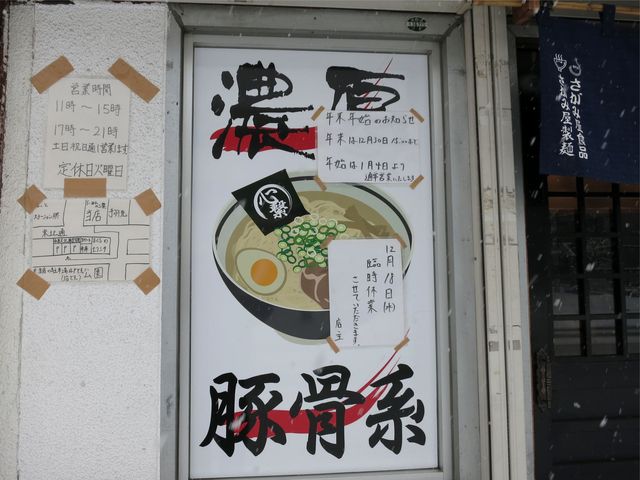 営業時間
11時～15時
17時～21時
土日祝日通し営業ます
定休日火曜日
当店
東北通
公園
濃厚
年末年始のお知らせ
年末は12月30日15:00まで
年始は1月4日より
通常営業いたします
心繋
12月18日(水)
臨時休業
させていただきます。
店主
豚骨系
さがみ屋食品
さがみ屋製麺